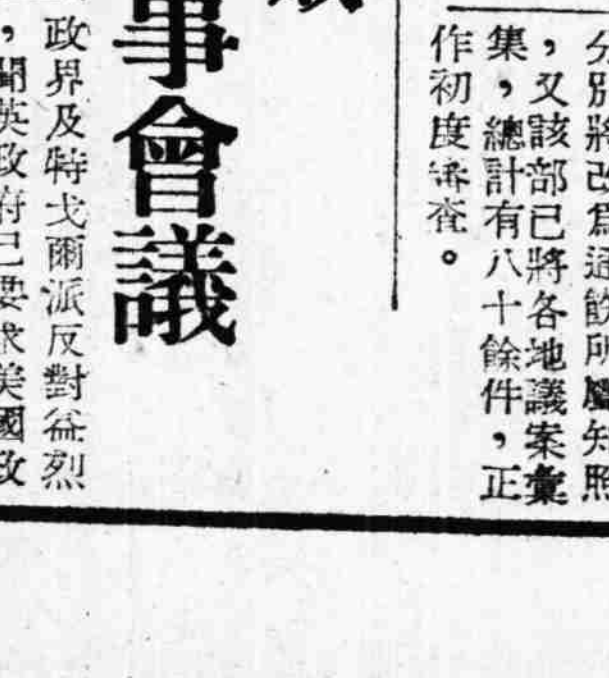 分別將改爲通飭所屬知照
，又該部已將各地議案彙
集，總計有八十餘件，正
作初度審查。
事會議
政界及特戈爾派反對益烈
，聞英政府已要求美國政